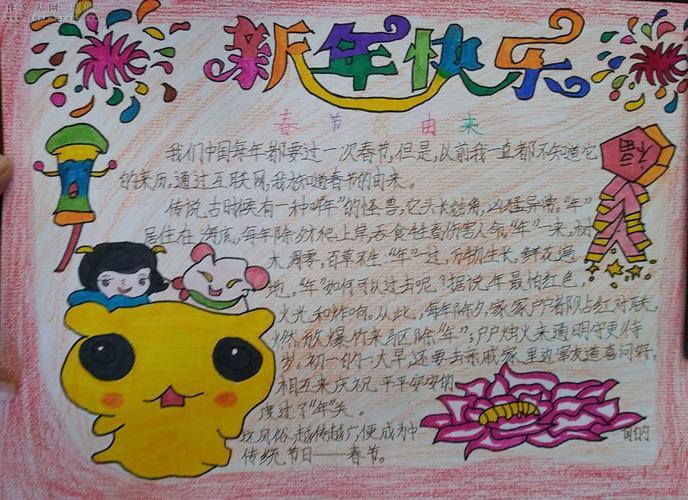 作文大网
新年快乐
春节的由来
我们中国每年都要过一次春节,但是,以前我一直都不知道它
的来历。通过互联网,我才知道春节的由来。
传说,古时候有一种叫"年"的怪兽,它头长触角,凶猛异常。"年"
居住在海底,每年除夕才爬上岸,吞食牲畜伤害人命。"年"一来,树
木凋零,百草不生。"年"一过,万物生长,鲜花遍
地。"年"如何可以过去呢?据说,年最怕红色,
火光和炸响。从此,每年除夕,家家户户都贴红对联,
燃放爆竹来驱除"年";户户烛火来通明守更待
岁。初一的一大早,还要去亲戚家里边朋友道喜问好,
相互来庆祝平平安安的
度过了"年"关。
这风俗越传越广,便成为中
国的
传统节日——春节。
福